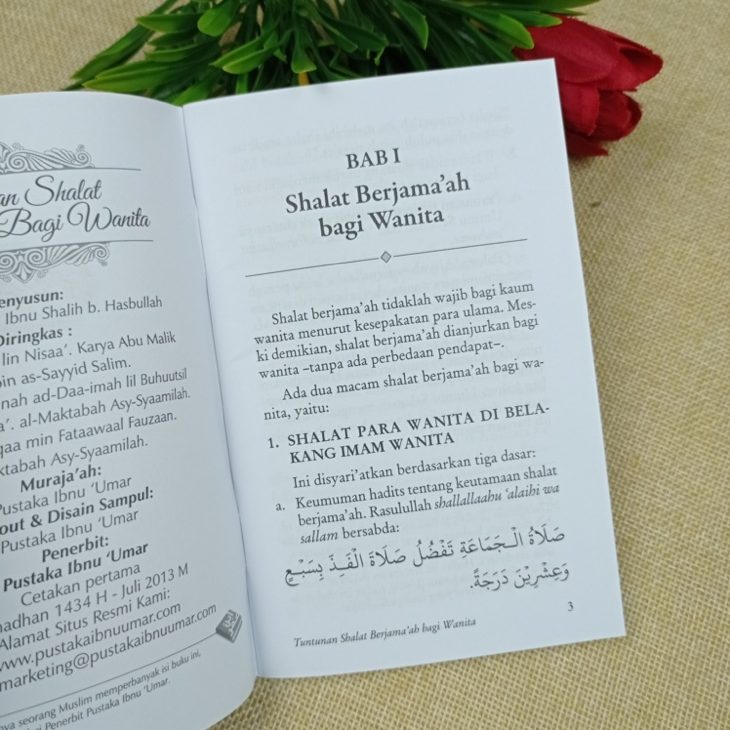 an Shalat
Bagi Wanita
enyusun:
Ibnu Shalih b. Hasbullah
Diringkas :
lin Nisaa'. Karya Abu Malik
bin as-Sayyid Salim.
nah ad-Daa-imah lil Buhuutsil
a'. al-Maktabah Asy-Syaamilah.
qaa min Fataawaal Fauzaan.
ktabah Asy-Syaamilah.
Muraja'ah:
Pustaka Ibnu 'Umar
out & Disain Sampul:
Pustaka Ibnu 'Umar
Penerbit:
Pustaka Ibnu 'Umar
Cetakan pertama
adhan 1434 H - Juli 2013 M
Alamat Situs Resmi Kami:
www.pustakaibnuumar.com
marketing@pustakaibnuumar.com
ya seorang Muslim memperbanyak isi buku ini,
Penerbit Pustaka Ibnu 'Umar.
BAB I
Shalat Berjama'ah
bagi Wanita
Shalat berjama'ah tidaklah wajib bagi kaum
wanita menurut kesepakatan para ulama. Mes-
ki demikian, shalat berjama'ah dianjurkan bagi
wanita –tanpa ada perbedaan pendapat–.
Ada dua macam shalat berjama'ah bagi wa-
nita, yaitu:
1. SHALAT PARA WANITA DI BELA-
KANG IMAM WANITA
Ini disyari'atkan berdasarkan tiga dasar:
a. Keumuman hadits tentang keutamaan shalat
berjama'ah. Rasulullah shallallaahu 'alaihi wa
sallam bersabda:
صَلَاةُ الْجَمَاعَةِ تَفْضُلُ صَلَاةَ الْفَذِّ بِسَبْعٍ
وَعِشْرِيْنَ دَرَجَةً.
3
Tuntunan Shalat Berjama'ah bagi Wanita